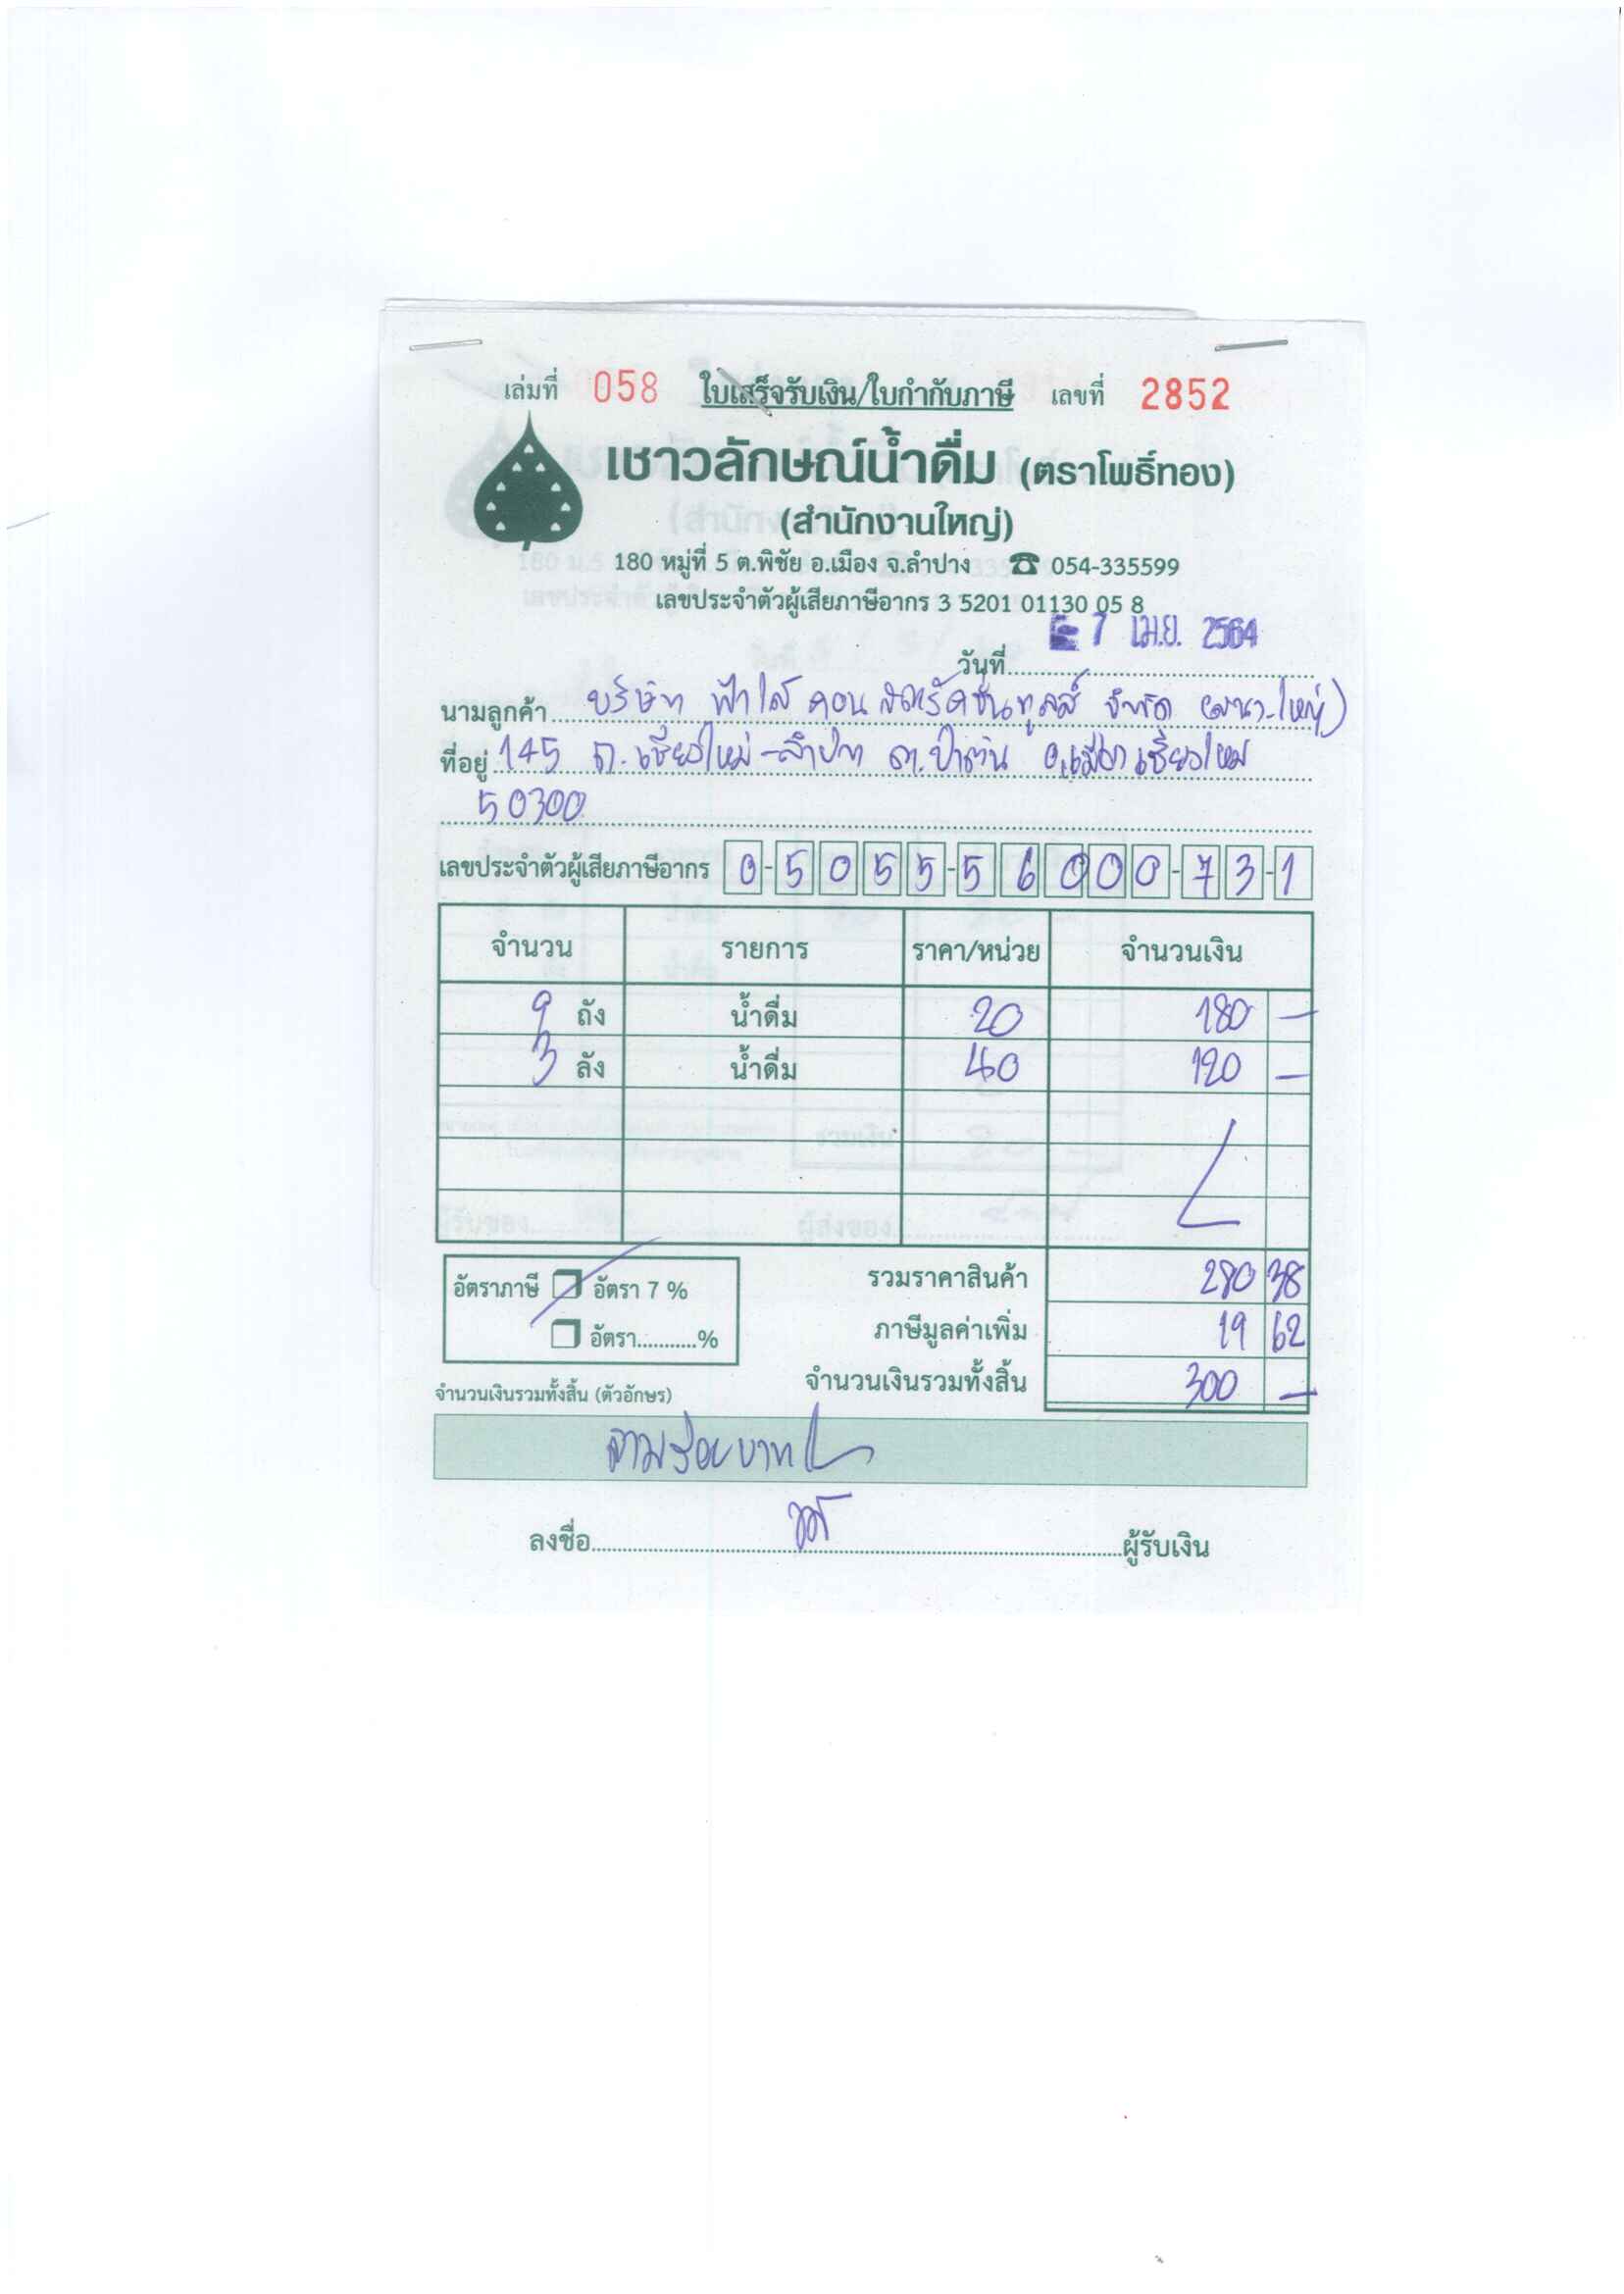 เล่มที่ 058 ใบเสร็จรับเงิน/ใบกำกับภาษี เลขที่ 2852
เชาวลักษณ์น้ำดื่ม (ตราโพธิ์ทอง)
(สำนักงานใหญ่)
180 หมู่ที่ 5 ต.พิชัย อ.เมือง จ.ลำปาง ☎ 054-335599
เลขประจำตัวผู้เสียภาษีอากร 3 5201 01130 05 8
วันที่ 7 เม.ย. 2564
นามลูกค้า บริษัท ฟ้าใส คอนสตรัคชั่นทูลส์ จำกัด (สนง.ใหญ่)
ที่อยู่ 145 ถ.เชียงใหม่-ลำปาง ต.ป่าตัน อ.เมือง เชียงใหม่
50300
เลขประจำตัวผู้เสียภาษีอากร 0-5055-56000-73-1
จำนวน รายการ ราคา/หน่วย จำนวนเงิน
9 ถัง น้ำดื่ม 20 180 –
3 ลัง น้ำดื่ม 40 120 –
อัตราภาษี อัตรา 7 % รวมราคาสินค้า 280 38
อัตรา...........% ภาษีมูลค่าเพิ่ม 19 62
จำนวนเงินรวมทั้งสิ้น (ตัวอักษร) จำนวนเงินรวมทั้งสิ้น 300 –
สามร้อยบาท
ลงชื่อ ผู้รับเงิน